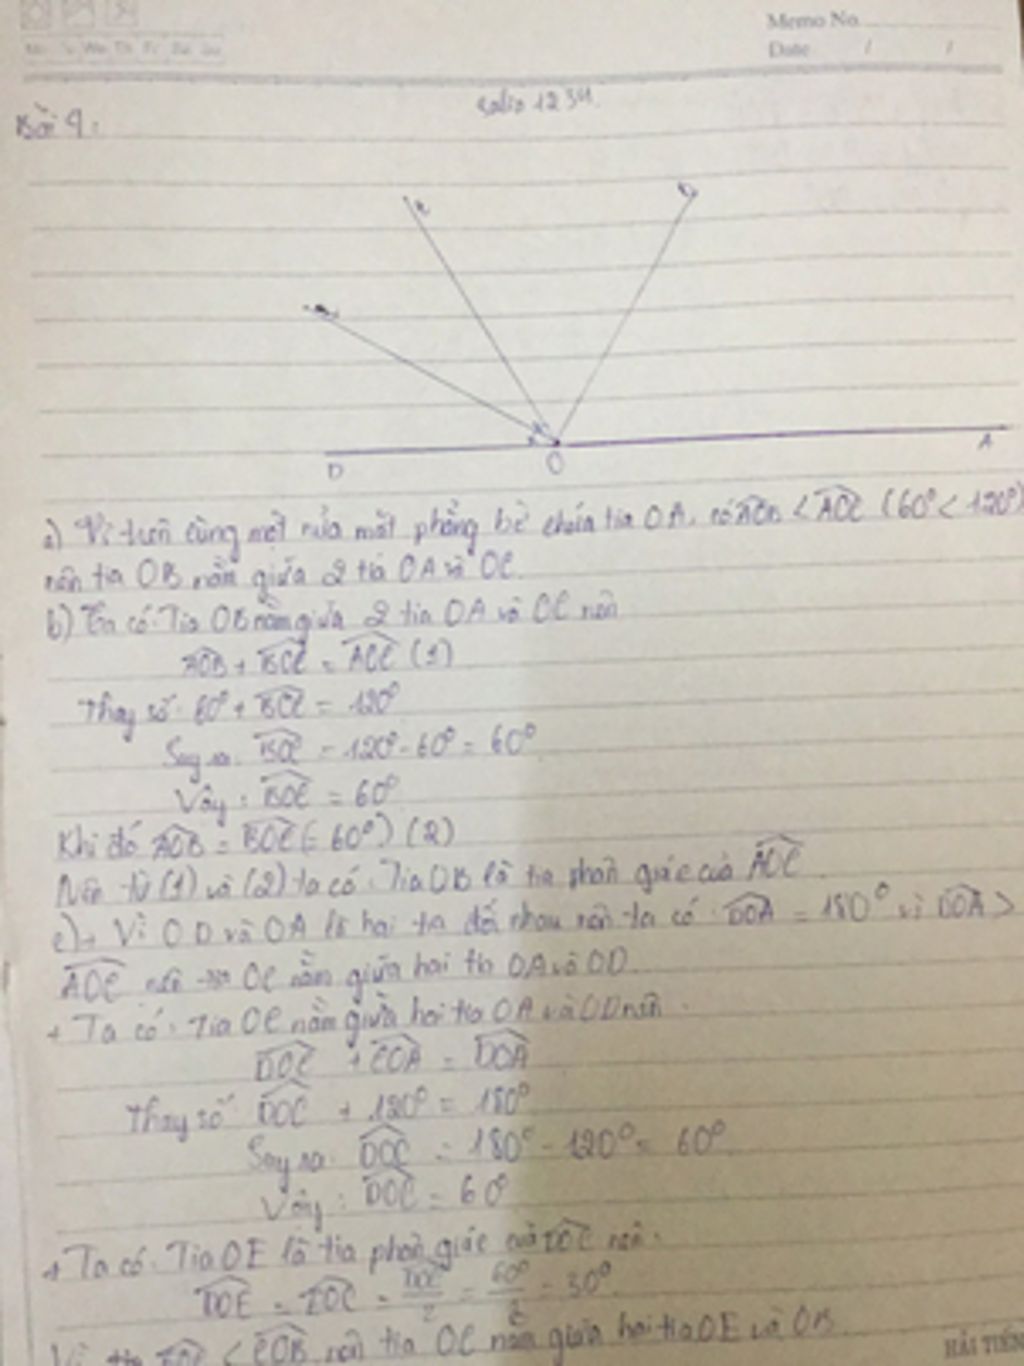 Memo No.
Date / /
Bài 4:
D O A
a) Vì trên cùng một nửa mặt phẳng bờ chứa tia OA, có AOB < AOC (60° < 120°)
nên tia OB nằm giữa 2 tia OA và OC.
b) Ta có: Tia OB nằm giữa 2 tia OA và OC nên
AOB + BOC = AOC (1)
Thay số: 60° + BOC = 120°
Suy ra: BOC = 120° - 60° = 60°
Vây: BOC = 60°
Khi đó AOB = BOC (= 60°) (2)
Nên từ (1) và (2) ta có: Tia OB là tia phân giác của AOC.
c) + Vì OD và OA là hai tia đối nhau nên ta có: DOA = 180° vì DOA >
AOC nên tia OC nằm giữa hai tia OA và OD.
+ Ta có: Tia OC nằm giữa hai tia OA và OD nên:
DOC + COA = DOA
Thay số DOC + 120° = 180°
Suy ra: DOC = 180° - 120° = 60°.
Vây: DOC = 60°
+ Ta có: Tia OE là tia phân giác của DOC nên:
DOE = EOC = DOC/2 = 60°/2 = 30°.
< COB nên tia OC nằm giữa hai tia OE và OB.
HẢI TIẾN